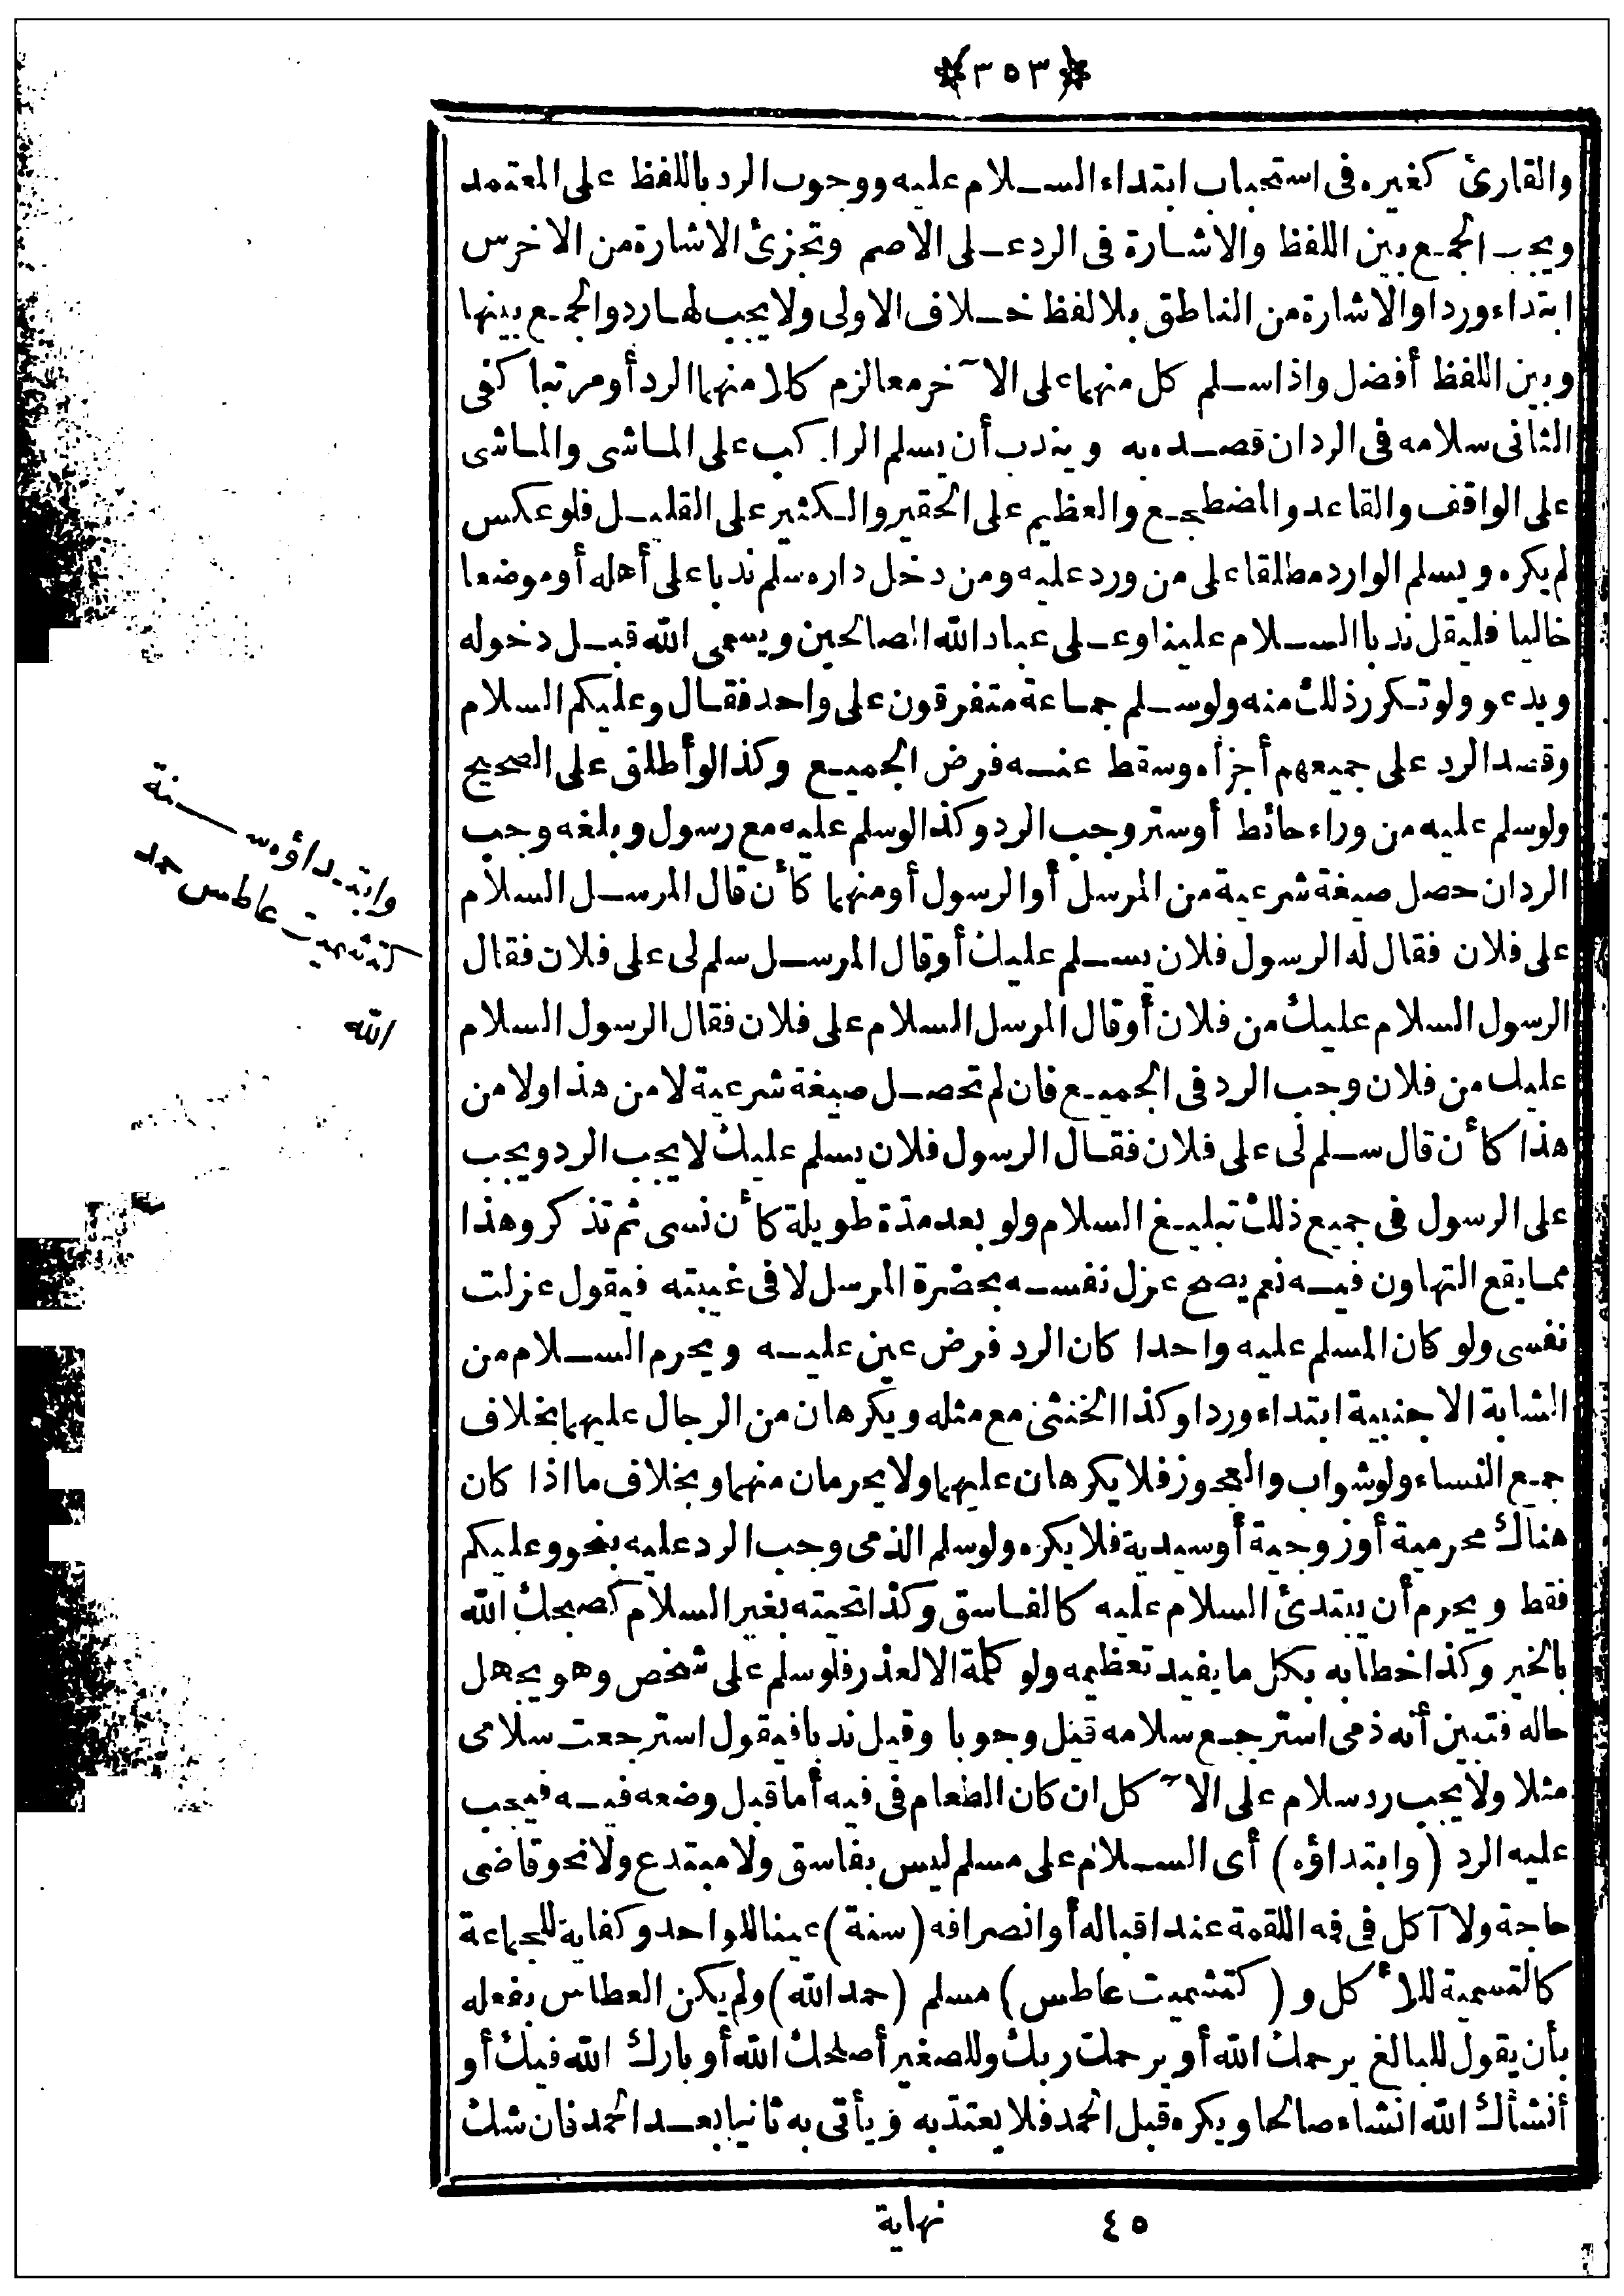 ﴿٣٥٣﴾
والقارئ كغيره فى استحباب ابتداء السلام عليه ووجوب الرد باللفظ على المعتمد
ويجب الجمع بين اللفظ والاشارة فى الرد على الاصم وتجزئ الاشارة من الاخرس
ابتداء وردا والاشارة من الناطق بلا لفظ خلاف الاولى ولا يجب لها رد والجمع بينها
وبين اللفظ أفضل واذا سلم كل منهما على الآخر معا لزم كلا منهما الرد أو مرتبا كفى
الثانى سلامه فى الرد ان قصده به ويندب أن يسلم الراكب على الماشى والماشى
على الواقف والقاعد والمضطجع والعظيم على الحقير والكثير على القليل فلو عكس
لم يكره ويسلم الوارد مطلقا على من ورد عليه ومن دخل داره سلم ندبا على أهله أو موضعا
خاليا فليقل ندبا السلام علينا وعلى عباد الله الصالحين ويسمى الله قبل دخوله
ويدعو ولو تكرر ذلك منه ولو سلم جماعة متفرقون على واحد فقال وعليكم السلام
وقصد الرد على جميعهم أجزأه وسقط عنه فرض الجميع وكذا لو أطلق على الصحيح
ولو سلم عليه من وراء حائط أو ستر وجب الرد وكذا لو سلم عليه مع رسول وبلغه وجب
الرد ان حصل صيغة شرعية من المرسل أو الرسول أو منهما كأن قال المرسل السلام
على فلان فقال له الرسول فلان يسلم عليك أو قال المرسل سلم لى على فلان فقال
الرسول السلام عليك من فلان أو قال المرسل السلام على فلان فقال الرسول السلام
عليك من فلان وجب الرد فى الجميع فان لم تحصل صيغة شرعية لا من هذا ولا من
هذا كأن قال سلم لى على فلان فقال الرسول فلان يسلم عليك لا يجب الرد ويجب
على الرسول فى جميع ذلك تبليغ السلام ولو بعد مدة طويلة كأن نسى ثم تذكر وهذا
مما يقع التهاون فيه نعم يصح عزل نفسه بحضرة المرسل لا فى غيبته فيقول عزلت
نفسى ولو كان المسلم عليه واحدا كان الرد فرض عين عليه ويحرم السلام من
الشابة الاجنبية ابتداء وردا وكذا الخنثى مع مثله ويكرهان من الرجال عليهما بخلاف
جمع النساء ولو شواب والعجوز فلا يكرهان عليهما ولا يحرمان منهما وبخلاف ما اذا كان
هناك محرمية أو زوجية أو سيدية فلا يكره ولو سلم الذمى وجب الرد عليه بنحو وعليكم
فقط ويحرم أن يبتدئ السلام عليه كالفاسق وكذا تحيته بغير السلام كصبحك الله
بالخير وكذا خطابه بكل ما يفيد تعظيمه ولو كلمة الا لعذر فلو سلم على شخص وهو يجهل
حاله فتبين أنه ذمى استرجع سلامه قيل وجوبا وقيل ندبا فيقول استرجعت سلامى
مثلا ولا يجب رد سلام على الآكل ان كان الطعام فى فيه أما قبل وضعه فيه فيجب
عليه الرد (وابتداؤه) أى السلام على مسلم ليس بفاسق ولا مبتدع ولا نحو قاضى
حاجة ولا آكل فى فمه اللقمة عند اقباله أو انصرافه (سنة) عينا للواحد وكفاية للجماعة
كالتسمية للأكل و (كتشميت عاطس) مسلم (حمد الله) ولم يكن العطاس بفعله
بأن يقول للبالغ يرحمك الله أو يرحمك ربك وللصغير أصلحك الله أو بارك الله فيك أو
أنشأك الله انشاء صالحا ويكره قبل الحمد فلا يعتد به ويأتى به ثانيا بعد الحمد فان شك
وابتداؤه سنة
كتشميت عاطس حمد
الله
٤٥ نهاية